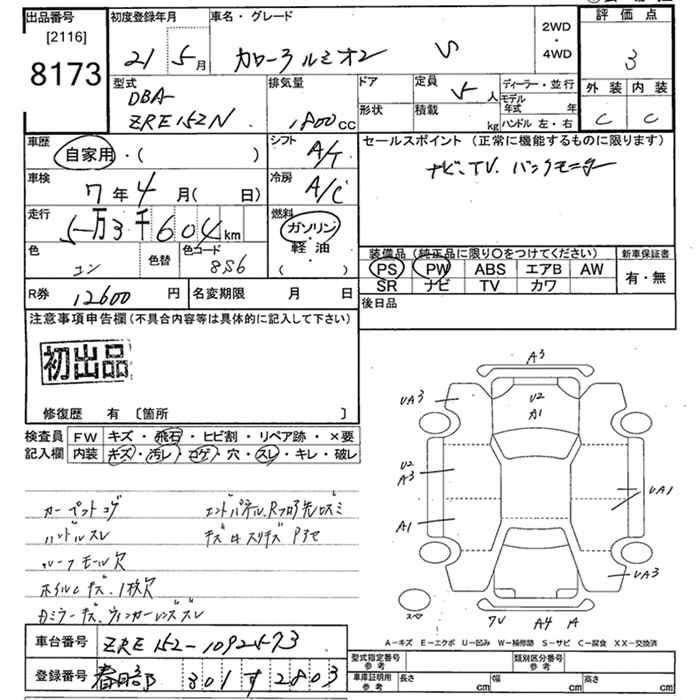 出品番号
[2116]
8173
初度登録年月
21 5月
車名・グレード
カローラルミオン S
2WD
・
4WD
評価点
3
外装 内装
C C
型式
DBA-
ZRE152N
排気量
1800cc
ドア
形状
定員
5人
積載
kg
ディーラー・並行
モデル年式 年
ハンドル 左・右
車歴
自家用・( )
シフト
A/T
セールスポイント(正常に機能するものに限ります)
ナビ、TV、バックモニター
車検
7年4月( 日)
冷房
A/C
走行
5万3千604km
燃料
ガソリン
軽・油
( )
色
コン
色替
色コード
8S6
装備品(純正品に限り〇をつけてください)
PS PW ABS エアB AW
SR ナビ TV カワ
新車保証書
有・無
R券
12600円
名変期限 月 日
後日品
注意事項申告欄(不具合内容等は具体的に記入して下さい)
初出品
修復歴 有 〔箇所 〕
検査員
記入欄
FW キズ・飛石・ヒビ割・リペア跡・×要
内装 キズ・汚レ・コゲ・穴・スレ・キレ・破レ
カーペットコゲ
ハンドルスレ
ルーフモール穴
ホイルキズ、1枚穴
カミラーキズ、ウィンカーレンズズレ
A3
UA3
U2
カ1
U2
A3
A1
UA1
UA3
スペア
7V A4 A
A-キズ E-エクボ U-凹み W-補修跡 S-サビ C-腐食 XX-交換済
車台番号
ZRE152-1092573
登録番号
春日部 301 す 2803
型式指定番号
参考
類別区分番号
参考
車庫証明用
参考
長さ cm
幅 cm
高さ cm